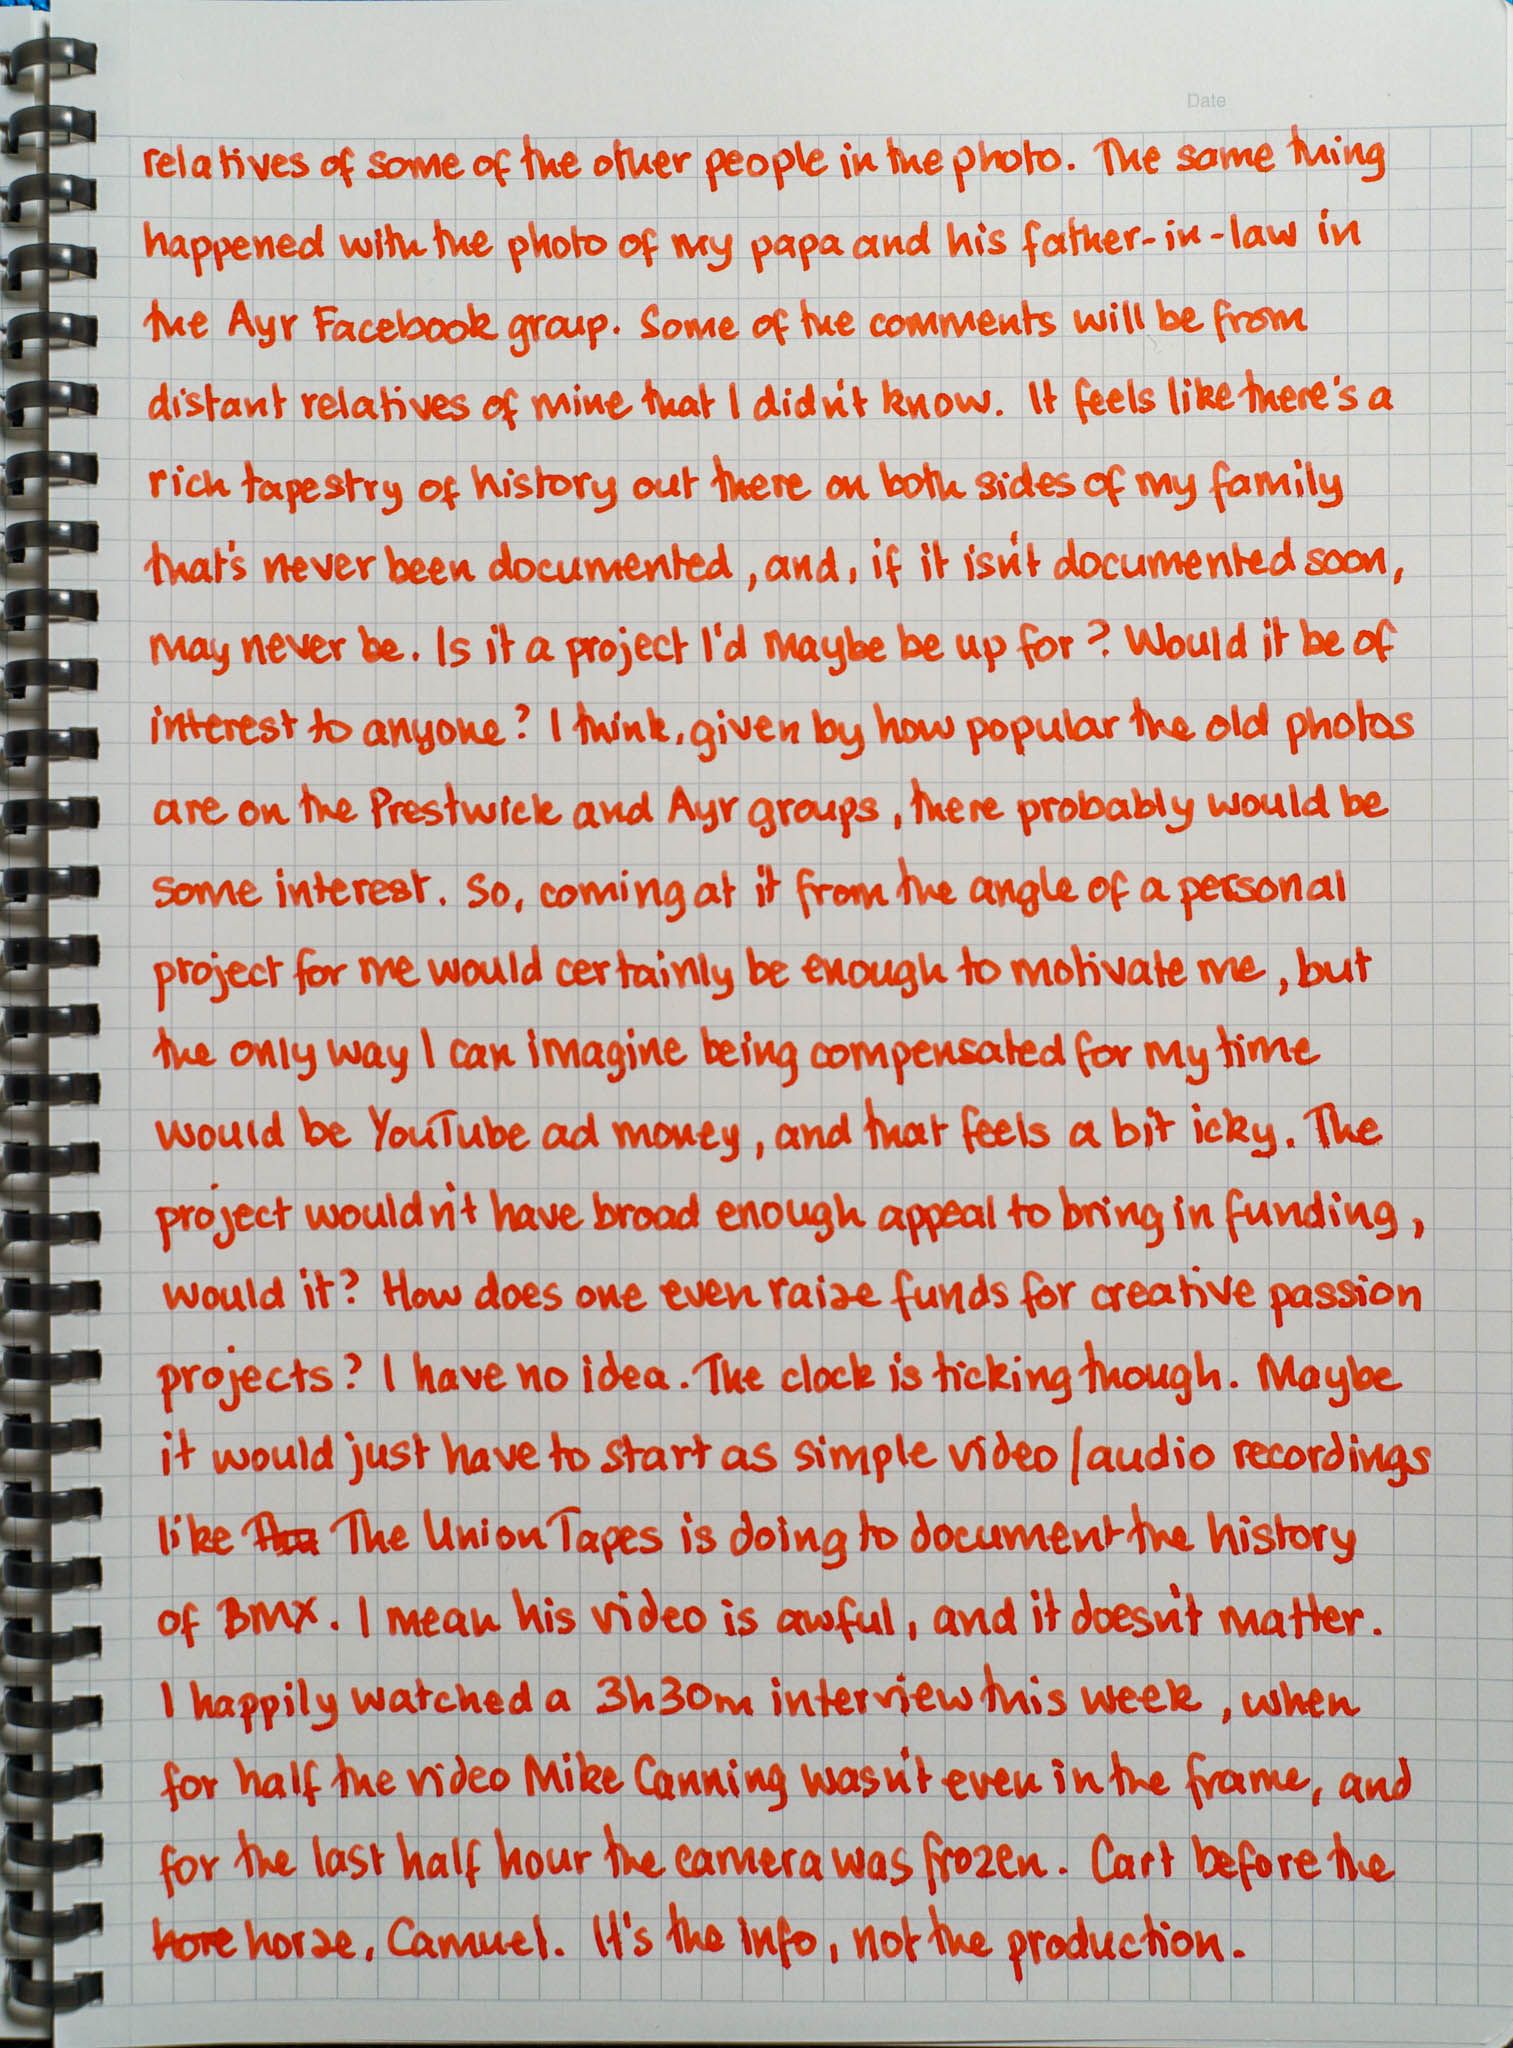 Date
relatives of some of the other people in the photo. The same thing
happened with the photo of my papa and his father-in-law in
the Ayr Facebook group. Some of the comments will be from
distant relatives of mine that I didn't know. It feels like there's a
rich tapestry of history out there on both sides of my family
that's never been documented, and, if it isn't documented soon,
may never be. Is it a project I'd maybe be up for? Would it be of
interest to anyone? I think, given by how popular the old photos
are on the Prestwick and Ayr groups, there probably would be
some interest. So, coming at it from the angle of a personal
project for me would certainly be enough to motivate me, but
the only way I can imagine being compensated for my time
would be YouTube ad money, and that feels a bit icky. The
project wouldn't have broad enough appeal to bring in funding,
would it? How does one even raise funds for creative passion
projects? I have no idea. The clock is ticking though. Maybe
it would just have to start as simple video/audio recordings
like The Union Tapes is doing to document the history
of BMX. I mean his video is awful, and it doesn't matter.
I happily watched a 3h30m interview this week, when
for half the video Mike Canning wasn't even in the frame, and
for the last half hour the camera was frozen. Cart before the
hore horse, Camuel. It's the info, not the production.